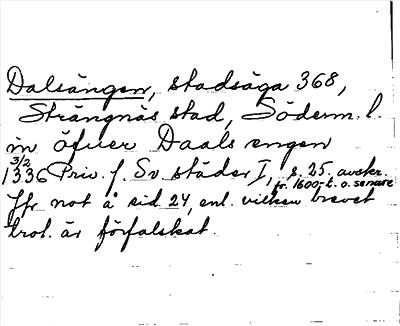 Dalsängen, stadsäga 368,
Strängnäs stad, Söderm. l.
in öfuer Daals engen
3/2
1336 Priv. f. Sv städer I, s. 25. avskr.
fr. 1600-t. o. senare
Jfr not å sid. 24, enl. vilken brevet
trol. är förfalskat.